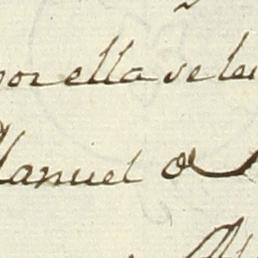 por ella se le
Manuel de